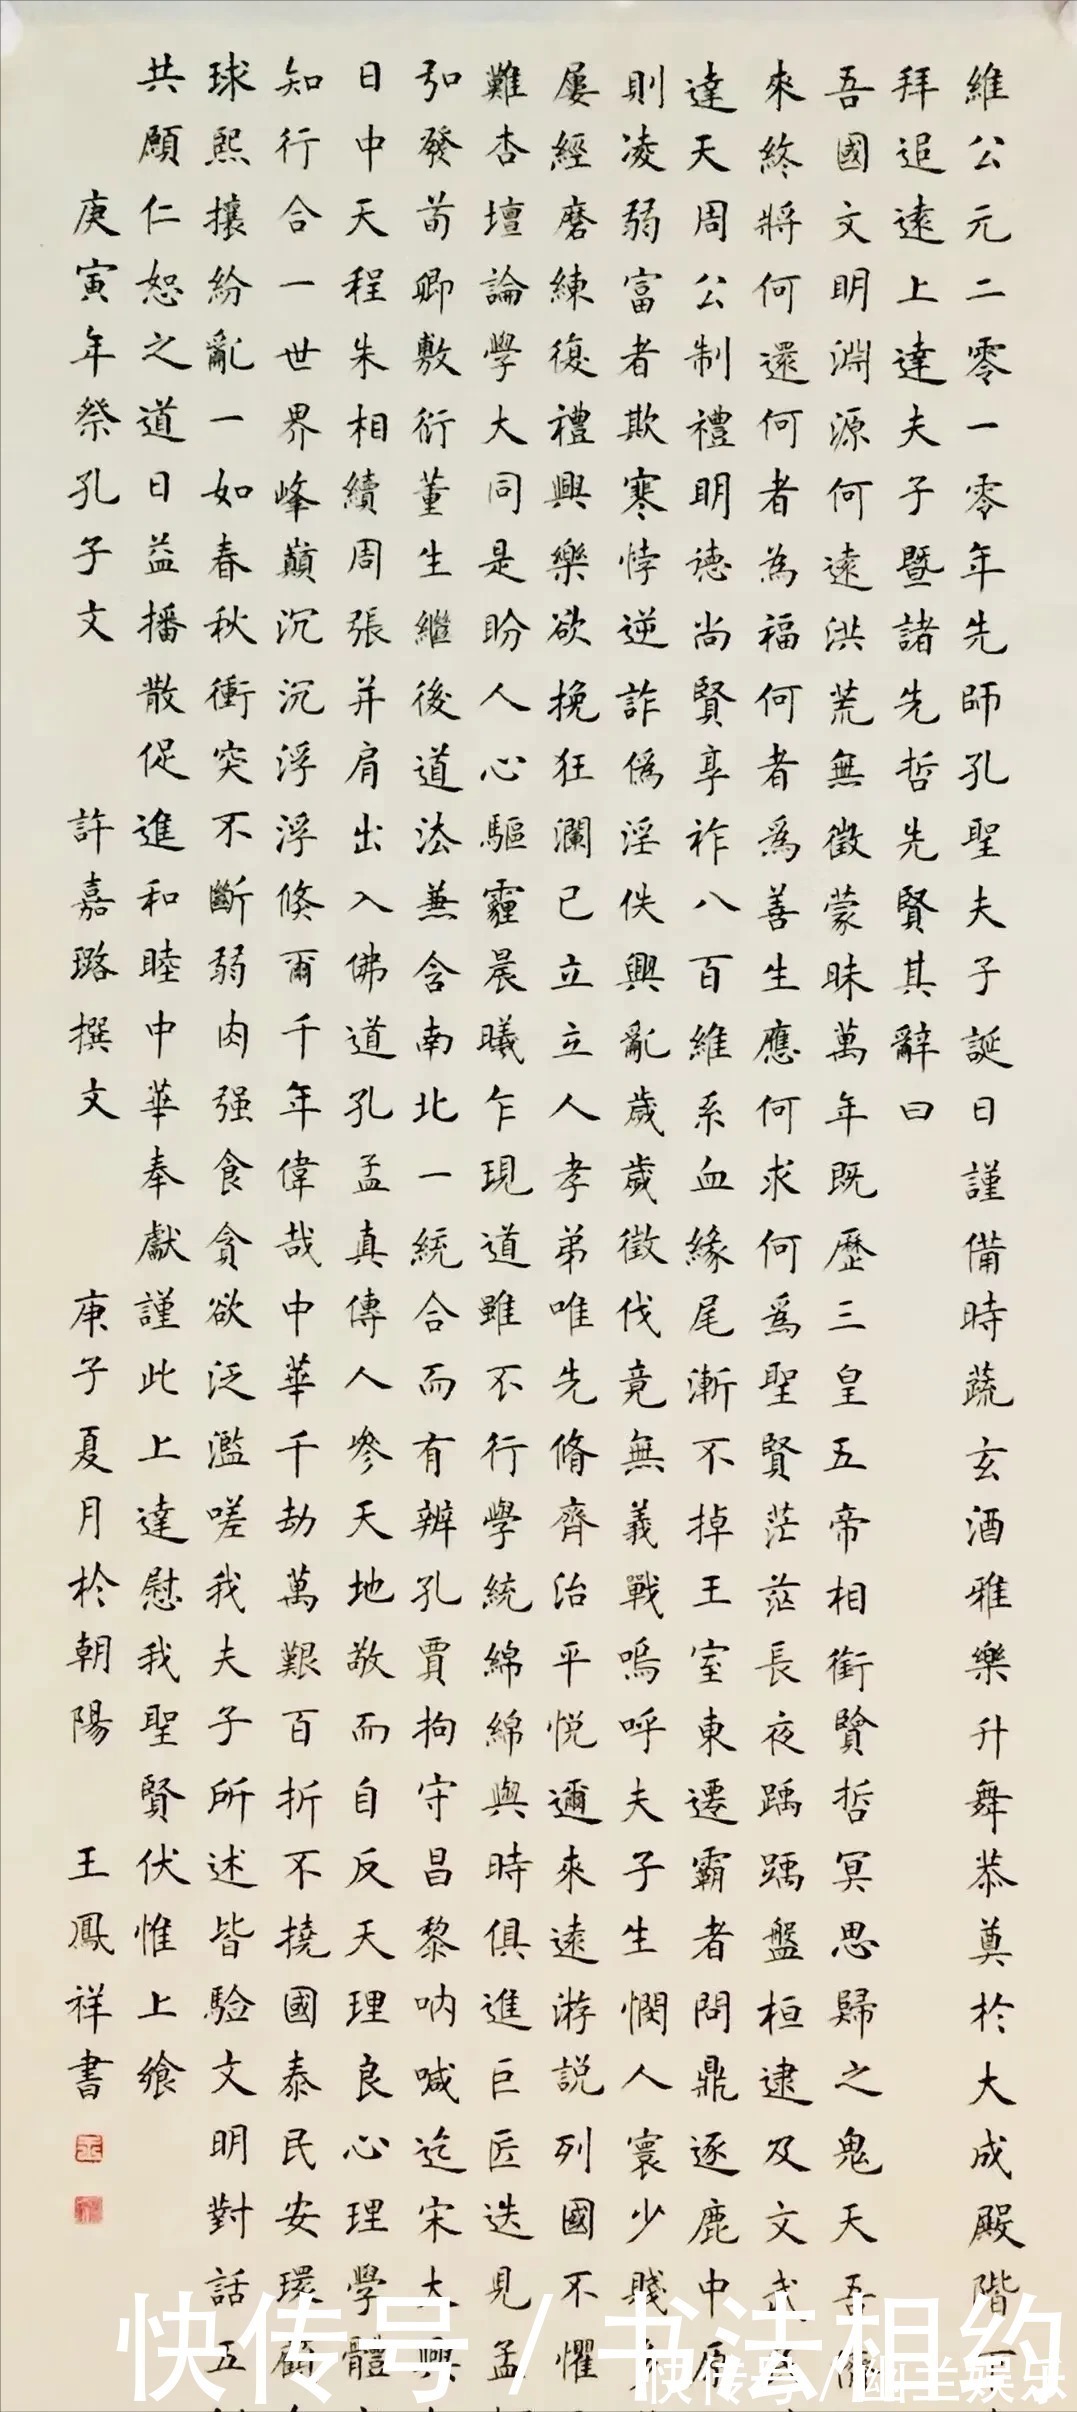 維公元二零一零年先師孔聖夫子誕日謹備時蔬玄酒雅樂升舞恭奠於大成殿階
拜追遠上達夫子暨諸先哲先賢其辭曰
吾國文明淵源何遠洪荒無徵蒙昧萬年既歷三皇五帝相銜賢哲冥思歸之鬼天吾
來終將何還何者為福何者爲善生應何求何爲聖賢茫茫長夜踽踽盤桓逮及文武
達天周公制禮明德尚賢享祚八百維系血緣尾漸不掉王室東遷霸者問鼎逐鹿中原
則凌弱富者欺寒悖逆詐僞淫佚興亂歲歲徵伐竟無義戰嗚呼夫子生憫人寰少賤
屢經磨練復禮興樂欲挽狂瀾已立立人孝弟唯先脩齊治平悦邇來遠游説列國不懼
難杏壇論學大同是盼人心驅霾晨曦乍現道雖不行學統綿綿與時俱進巨匠迭見孟
弘發荀卿敷衍董生繼後道法兼含南北一統合而有辨孔賈拘守昌黎吶喊迄宋大興
日中天程朱相續周張并肩出入佛道孔孟真傳人參天地敬而自反天理良心理學體
知行合一世界峰巔沉沉浮浮倏爾千年偉哉中華千劫萬艱百折不撓國泰民安環顧
球熙攘紛亂一如春秋衝突不斷弱肉强食貪欲泛濫嗟我夫子所述皆驗文明對話五
共願仁恕之道日益播散促進和睦中華奉獻謹此上達慰我聖賢伏惟上飨
庚寅年祭孔子文 許嘉璐撰文 庚子夏月於朝陽 王鳳祥書
快传号/书法相约
快传号/幽兰娱乐